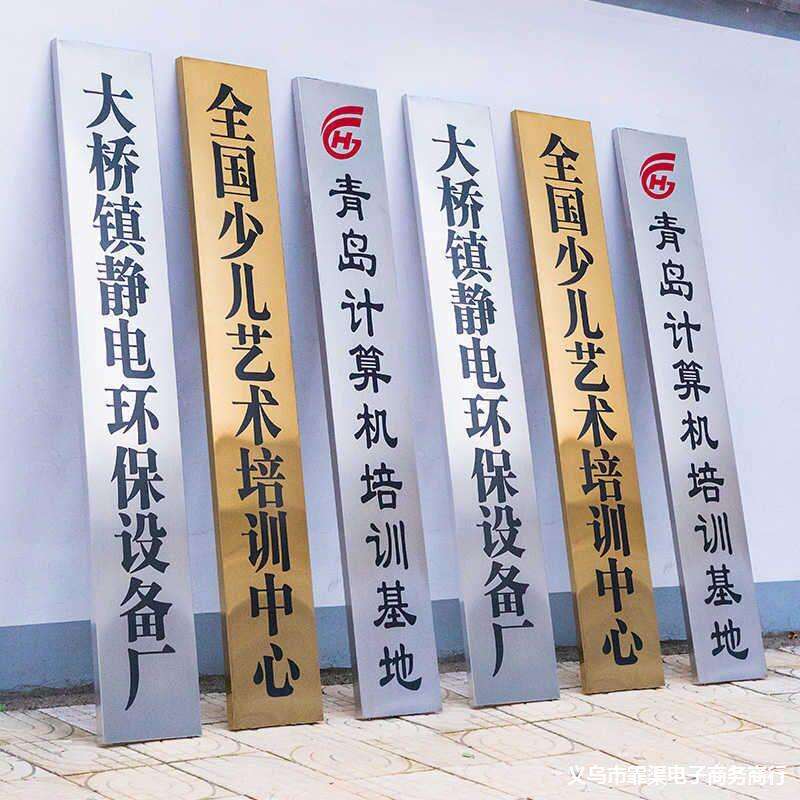 大桥镇静电环保设备厂
全国少儿艺术培训中心
H
青岛计算机培训基地
大桥镇静电环保设备厂
全国少儿艺术培训中心
H
青岛计算机培训基地
义乌市霏渠电子商务商行